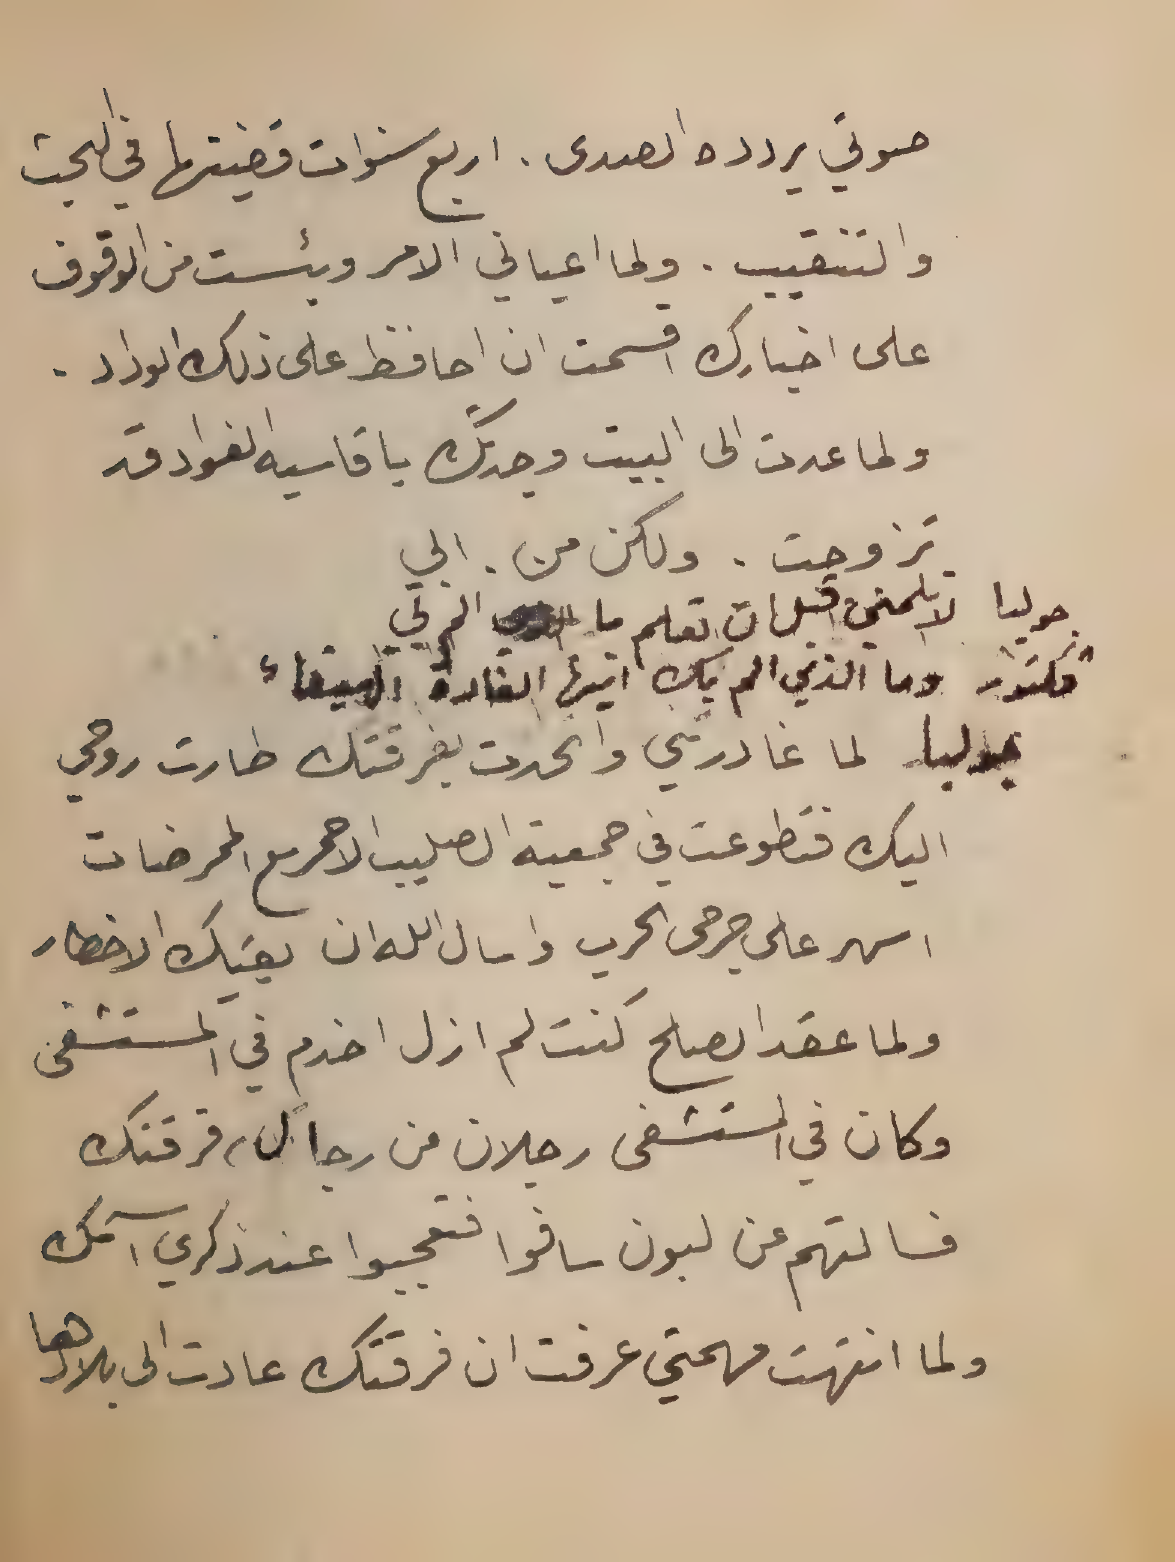 صوتي يردده الصدى . اربع سنوات قضيتها في البحث
والتنقيب . ولما اعياني الامر ويئست من الوقوف
على اخبارك اقسمت ان احافظ على ذلك الوداد .
ولما عدت الى البيت وجدتك يا قاسية الفواد قد
تزوجت . ولكن من . ابي
جوليا لا تلمني قبل ان تعلم ما الم بي
فكتور وما الذي الم بك ايتها الغادة الهيفاء
جوليا لما غادرتني واتحدت بفرقتك طارت روحي
اليك فتطوعت في جمعية الصليب الاحمر مع الممرضات
اسهر على جرحى الحرب واسال الله ان يقيك الاخطار
ولما عقد الصلح كنت لم ازل اخدم في المستشفى
وكان في المستشفى رجلان من رجال فرقتك
فسالتهم عن ليون سافوا فتعجبوا عند ذكري اسمك
ولما انتهت مهمتي عرفت ان فرقتك عادت الى بلادها